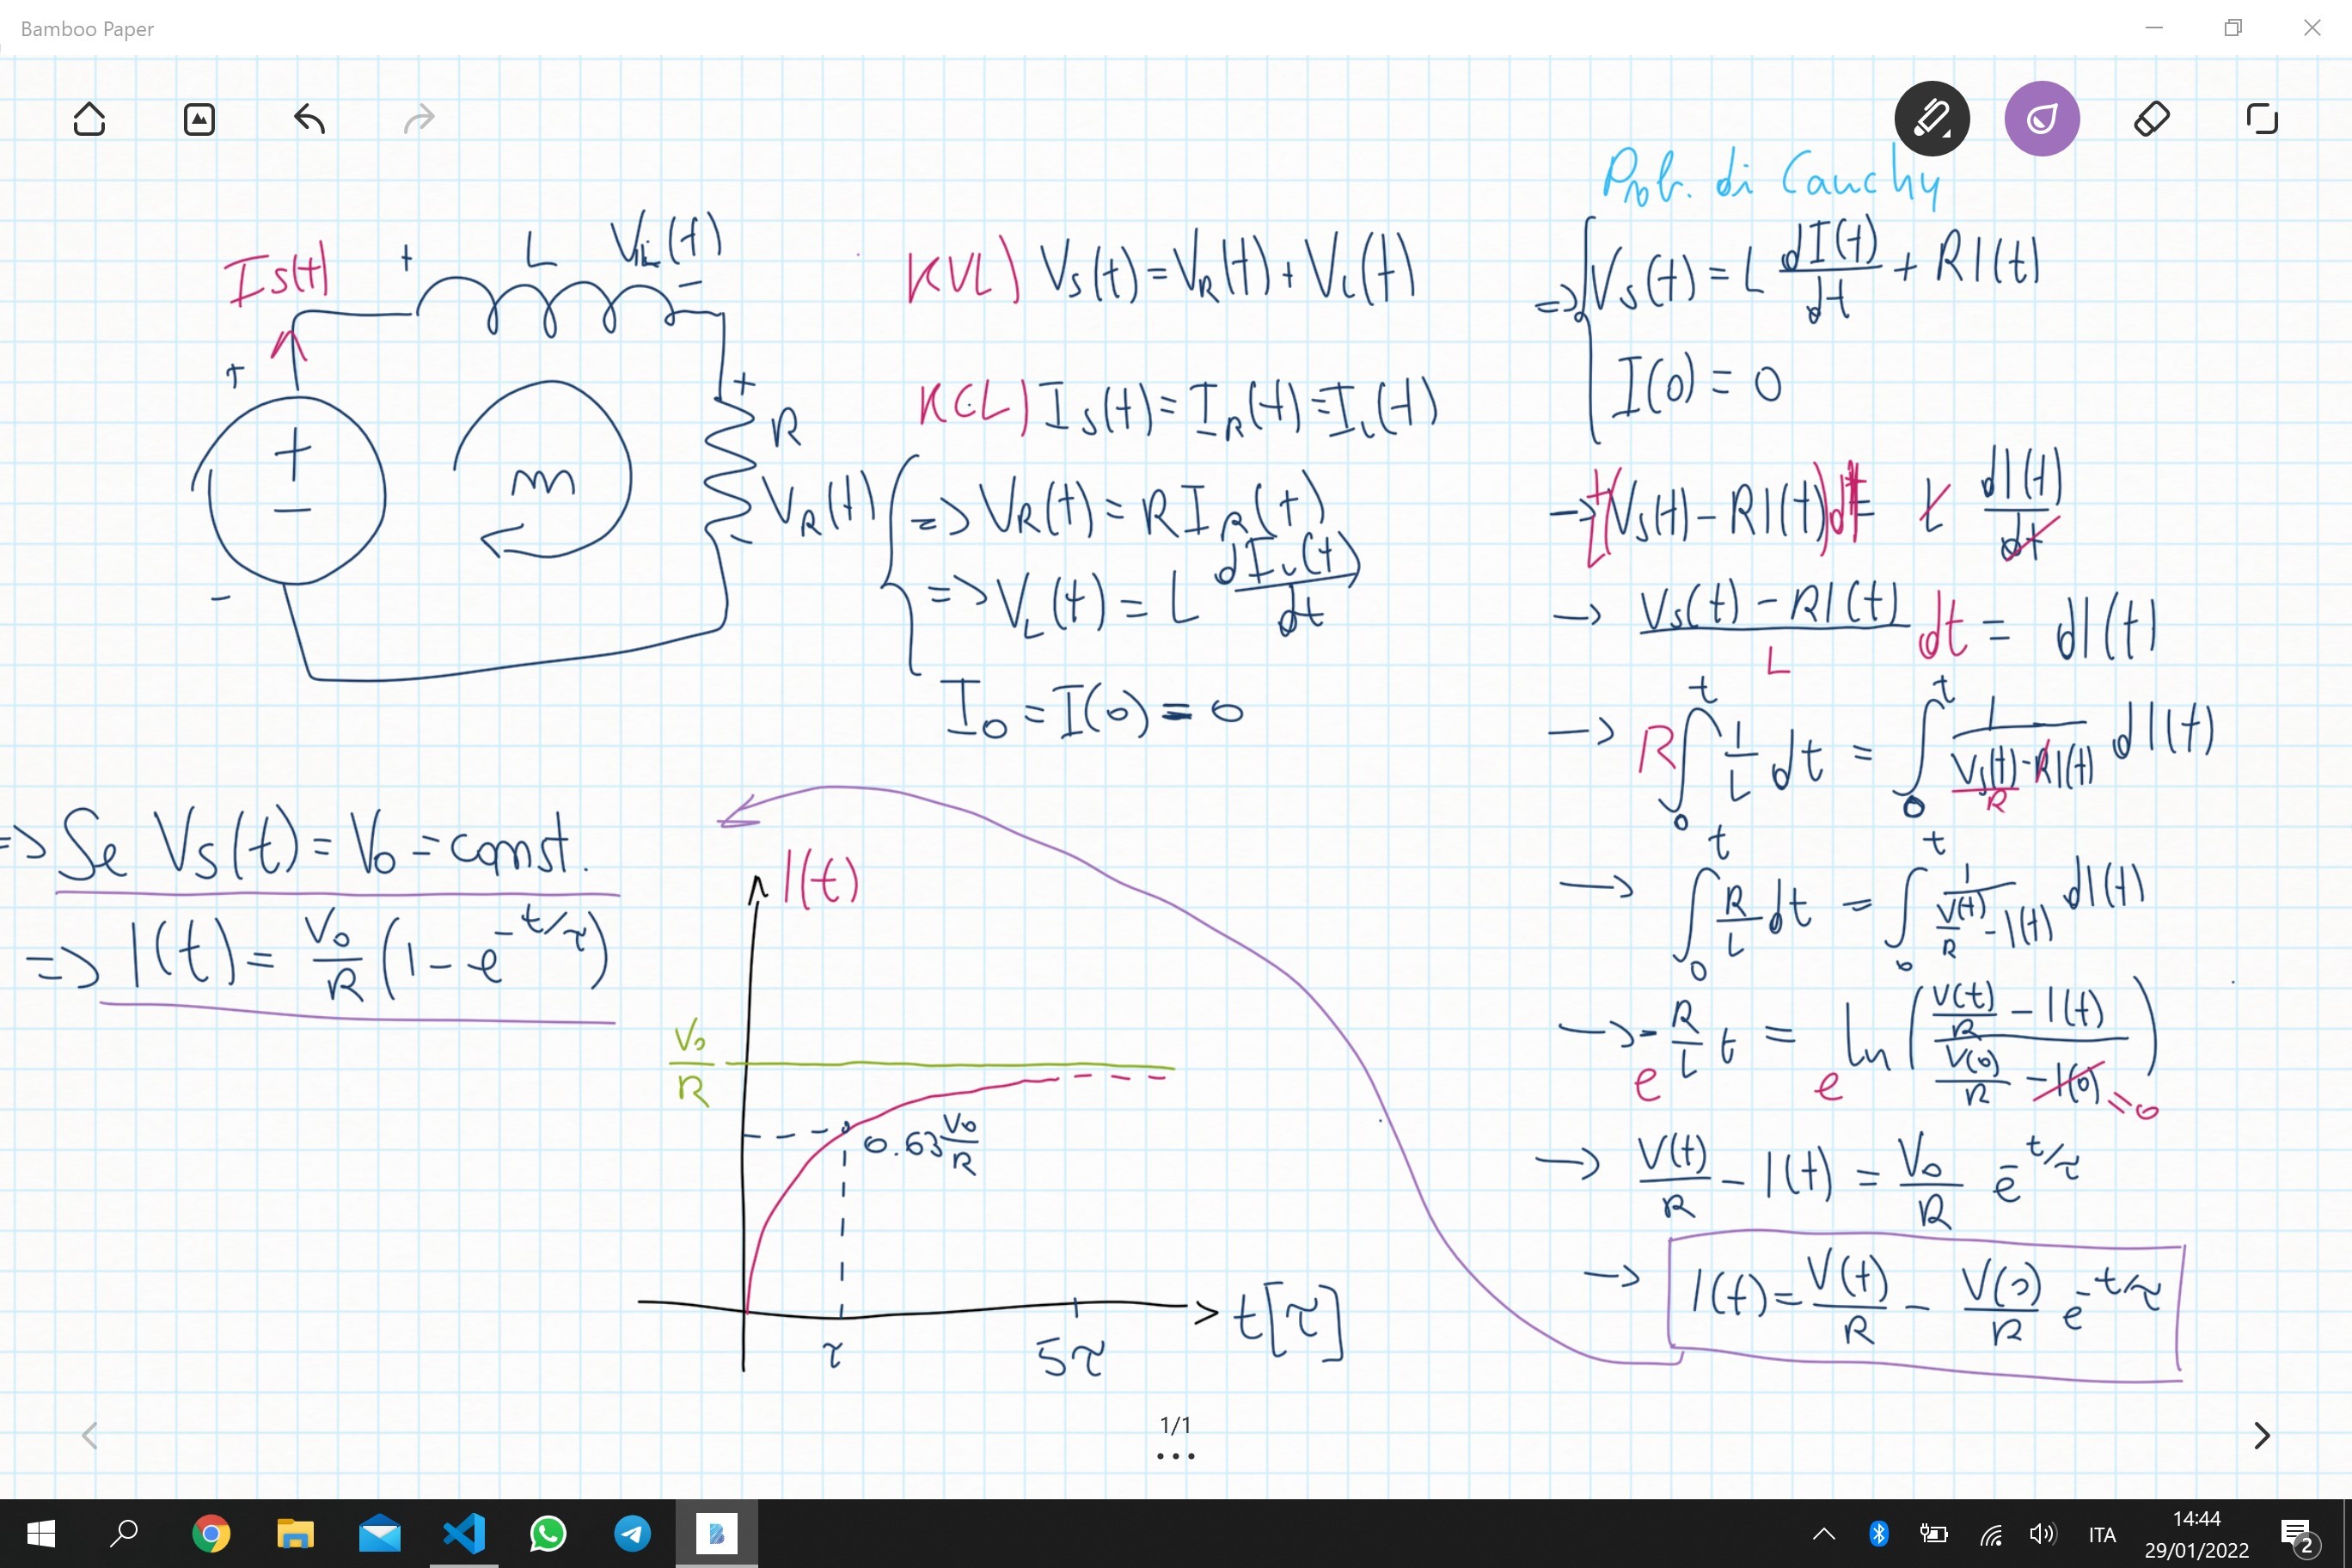 Bamboo Paper
Prob. di Cauchy
Is(t)
+ L VL(t) −
+
+
−
−
m
+
R
VR(t)
−
KVL) Vs(t) = VR(t) + VL(t)
KCL) Is(t) = IR(t) = IL(t)
=> VR(t) = R IR(t)
=> VL(t) = L dIL(t)/dt
I0 = I(0) = 0
=> Vs(t) = L dI(t)/dt + RI(t)
I(0) = 0
→ 1/L (Vs(t) − RI(t)) dt = L dI(t)/dt
→ (Vs(t) − RI(t))/L dt = dI(t)
→ R ∫₀ᵗ 1/L dt = ∫₀ᵗ 1/(Vs(t)/R − RI(t)) dI(t)
→ ∫₀ᵗ R/L dt = ∫₀ᵗ 1/(V(t)/R − I(t)) dI(t)
→ e − R/L t = e ln((V(t)/R − I(t))/(V(0)/R − I(0))) = 0
→ V(t)/R − I(t) = V0/R e^−t/τ
→ I(t) = V(t)/R − V(0)/R e^−t/τ
=> Se Vs(t) = V0 = const.
=> I(t) = V0/R (1 − e^−t/τ)
I(t)
V0/R
0.63 V0/R
τ
5τ
t[τ]
1/1
ITA
14:44
29/01/2022
2